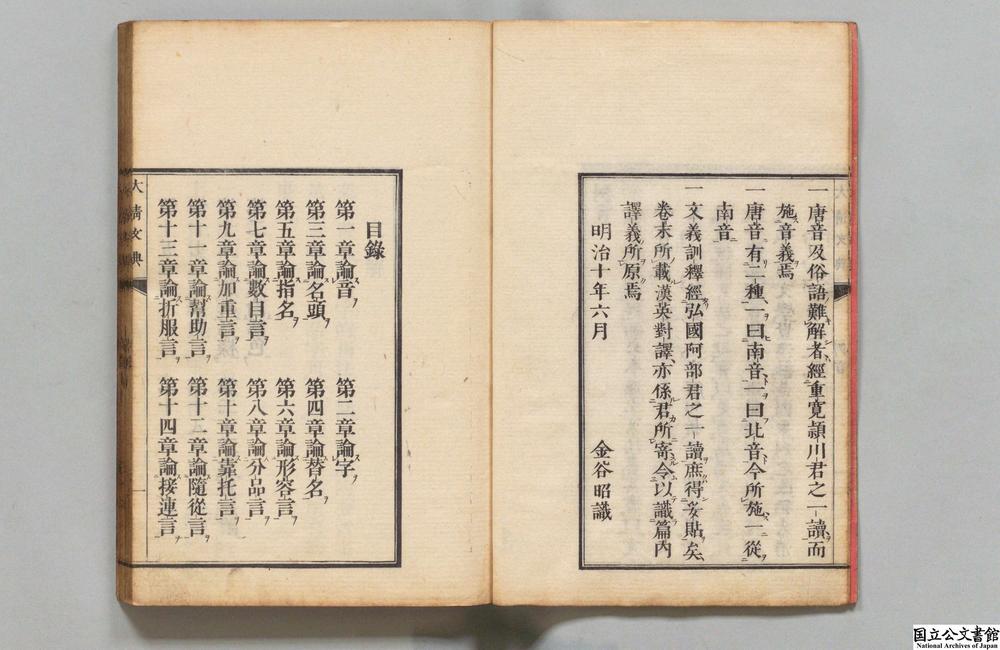 一唐音及俗語難解者經重寛潁川君之一讀而
施音義焉
一唐音有二種一曰南音一曰北音今所施一從
南音
一文義訓釋經弘國阿部君之一讀庶得妥貼矣
卷末所載漢英對譯亦係君所寄令以識篇內
譯義所原焉
明治十年六月 金谷昭識
大清文典
目錄
第一章論音 第二章論字
第三章論名頭 第四章論替名
第五章論指名 第六章論形容言
第七章論數目言 第八章論分品言
第九章論加重言 第十章論靠托言
第十一章論幫助言 第十二章論隨從言
第十三章論折服言 第十四章論接連言
一
国立公文書館
National Archives of Japan